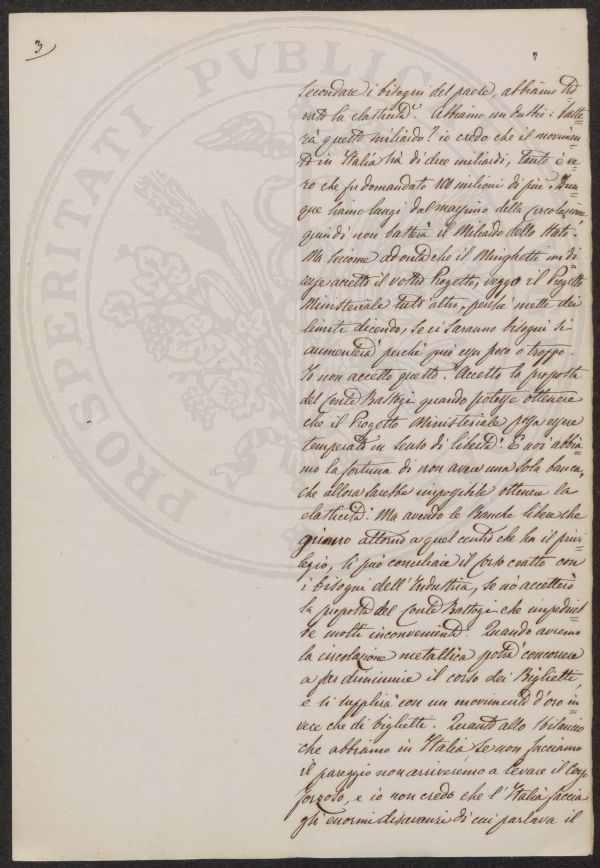 3
PROSPERITATI PVBLIC
secondare i bisogni del paese, abbiamo tro
vato la elasticità. Abbiamo un dubbio: baste=
rà questo miliardo? io credo che il movimen=
to in Italia sia di due miliardi, tanto è ve=
ro che fu domandato 100 milioni di più. Dun=
que siamo lungi dal massimo della circolazione,
quindi non basterà il Miliardo dello Stato.
Ma siccome ad onta che il Minghetti mi di
cesse accetto il vostro Progetto, veggo il Progetto
Ministeriale tutt'altro, perché mette dei
limiti dicendo, se ci saranno bisogni si
aumenterà perché può esser poco o troppo.
Io non accetto questo. Accetto la proposta
del Conte Bastogi quando potesse ottenere
che il Progetto Ministeriale possa essere
temperato in senso di libertà. E noi abbia=
mo la fortuna di non avere una sola banca,
che allora sarebbe impossibile ottenere la
elasticità. Ma avendo le Banche libere che
girano attorno a quel centro che ha il privi=
legio, si può conciliare il corso coatto con
i bisogni dell'Industria, se no accetterò
la proposta del Conte Bastogi che impedireb
be molti inconvenienti. Quando avremo
la circolazione metallica potrà concorrere
a far diminuire il corso dei Biglietti,
e si supplirà con un movimento d'oro in=
vece che di biglietti. Quanto allo sbilancio
che abbiamo in Italia se non facciamo
il pareggio non arriveremo a levare il Corso
forzoso, e io non credo che l'Italia faccia
gli enormi disavanzi di cui parlava il